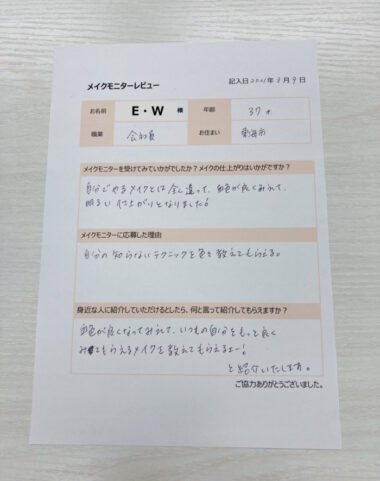 メイクモニターレビュー
記入日 2021年3月9日
お名前 E・W 様 年齢 37才
職業 会社員 お住まい
メイクモニターを受けてみていかがでしたか？メイクの仕上がりはいかがですか？
自分でやるメイクとは全く違って、血色が良くみえて、
明るい仕上がりとなりました！
メイクモニターに応募した理由
自分の知らないテクニックを色々教えてもらえる。
身近な人に紹介していただけるとしたら、何と言って紹介してもらえますか？
血色が良くなってみえて、いつもの自分をもっと良く
みてもらえるメイクを教えてもらえるよー！
と紹介いたします。
ご協力ありがとうございました。